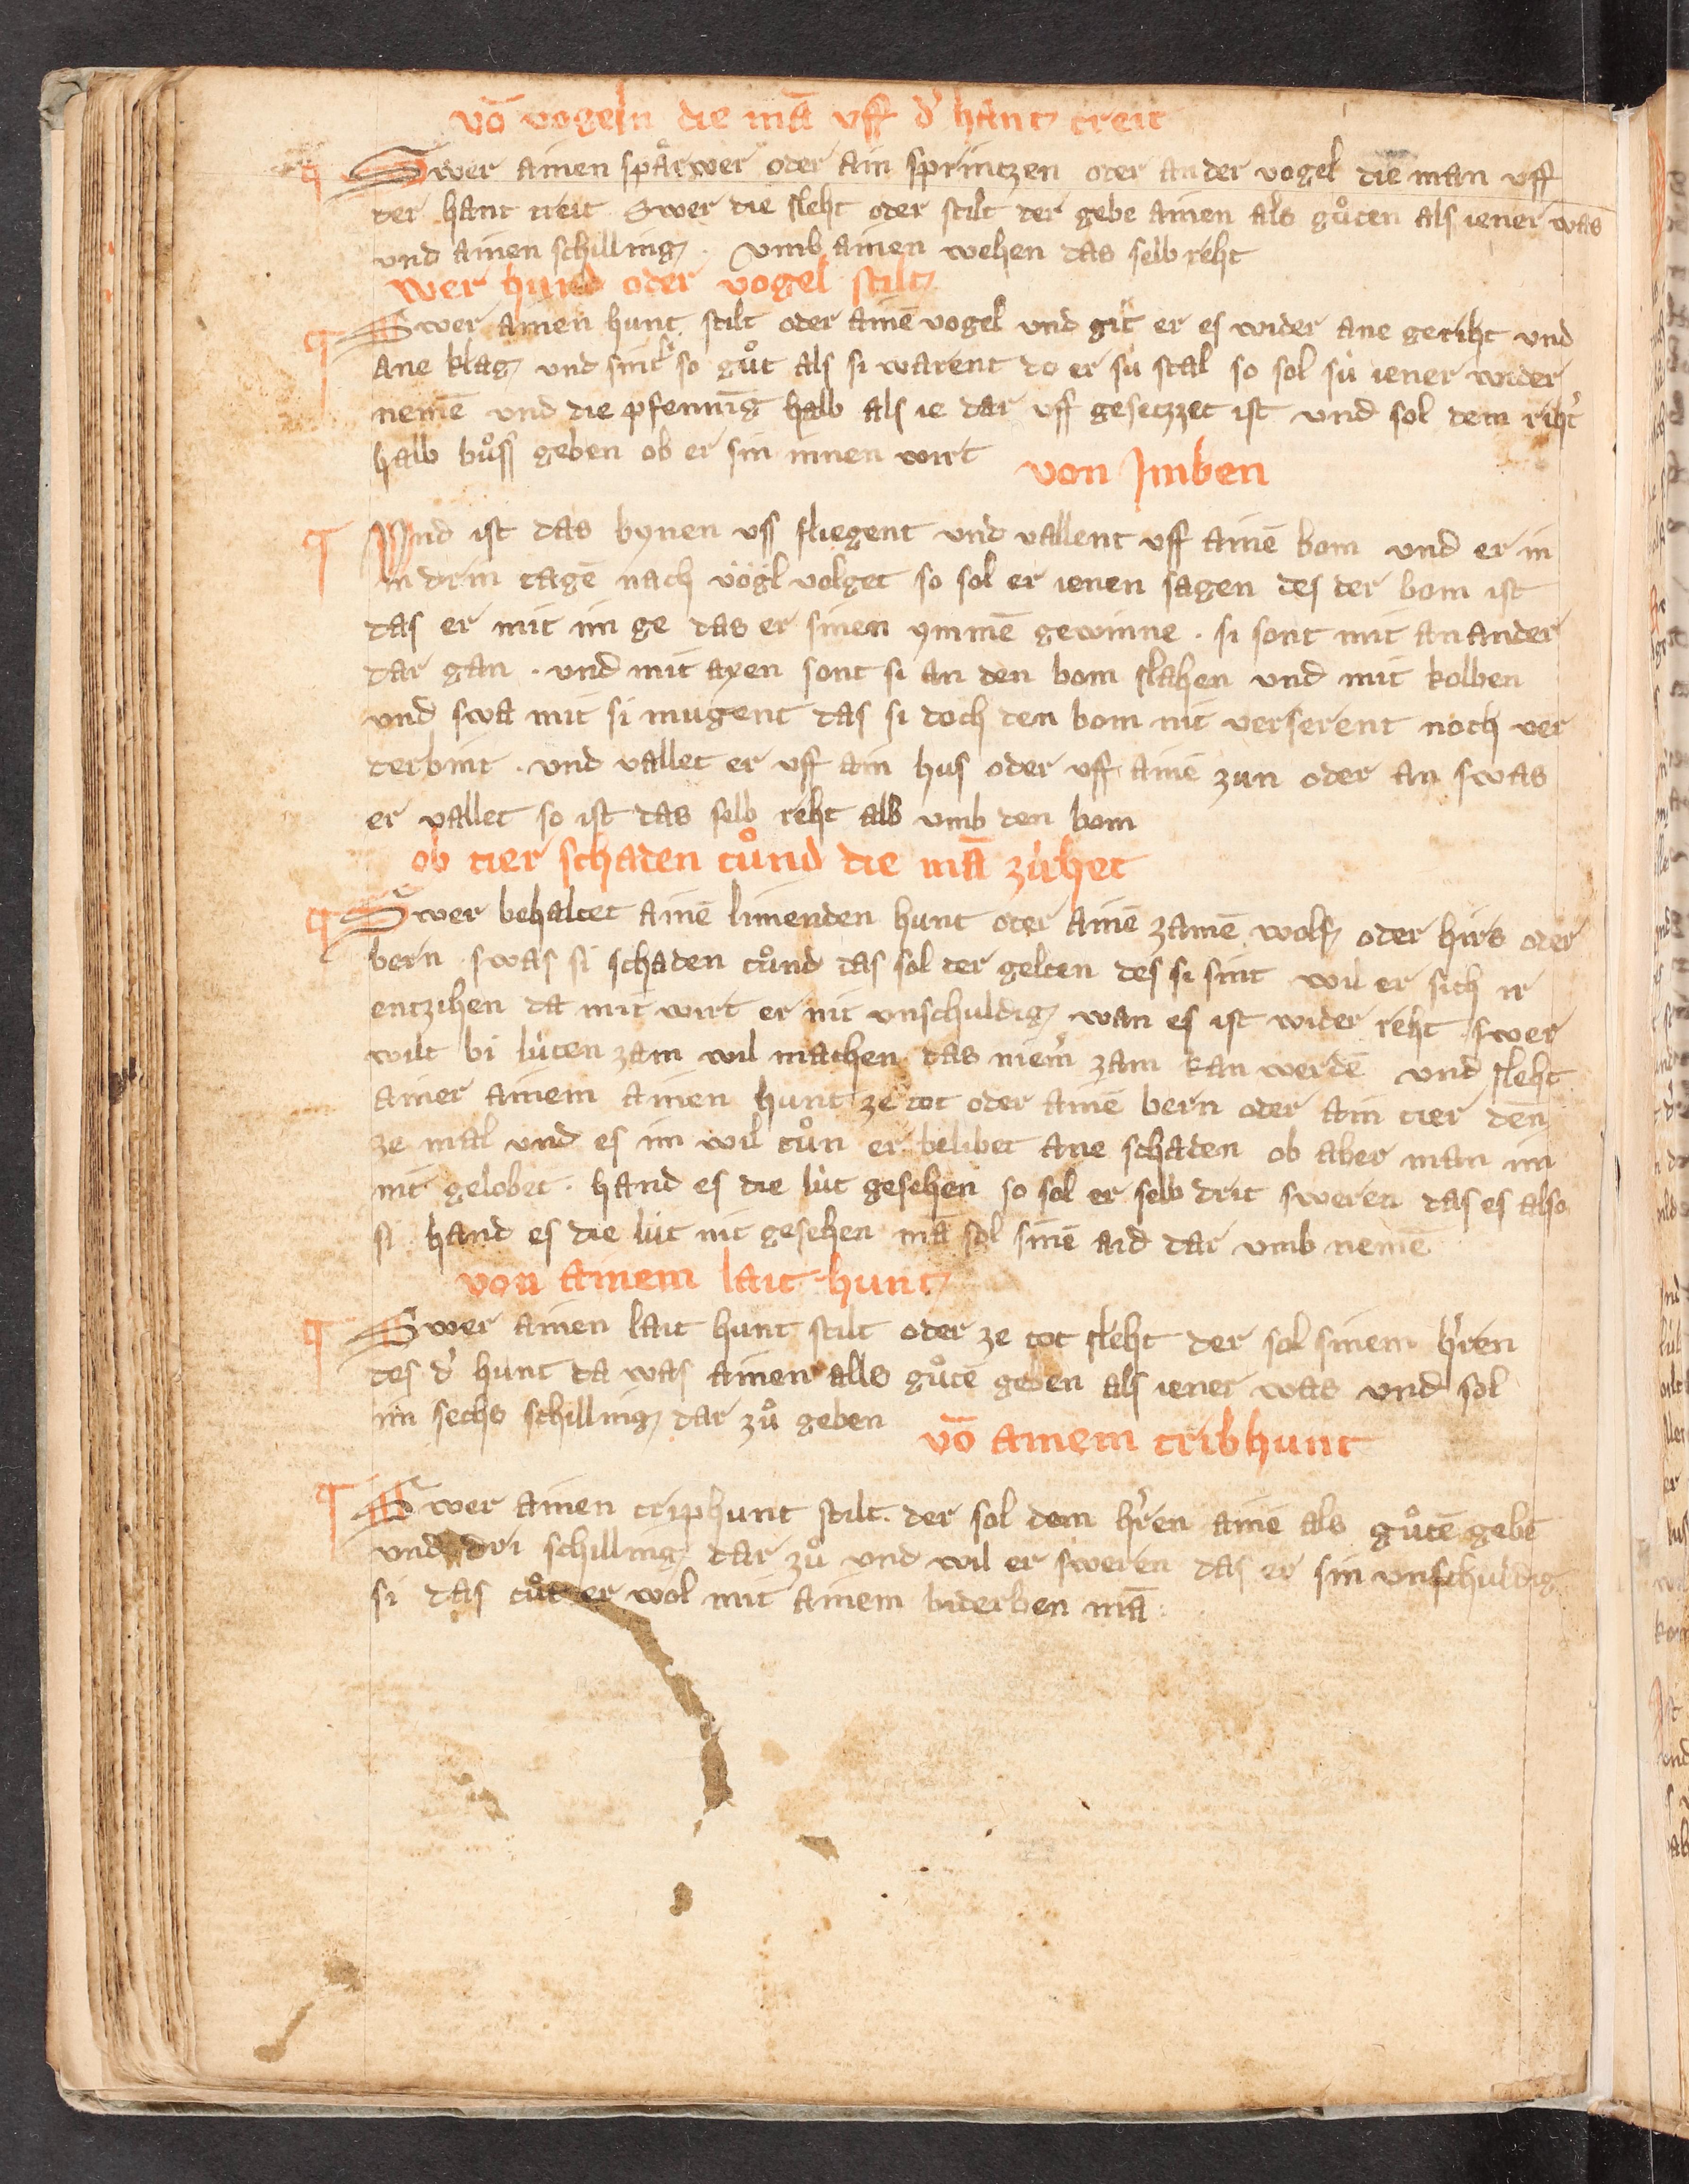 vō vogeln die mā vff d' hant treit
¶ Swer ainen spaͤrwer oder ain sprintzen oder ander vogel die man vff
der hant treit Swer die sleht oder stilt der gebe ainen als guͦten als iener was
vnd ainen schilling . vmb ainen wehen das selb reht
wer hund oder vogel stilt
¶ Swer ainen hunt stilt oder ainē vogel vnd git er es wider ane geriht vnd
ane klag vnd sint so guͦt als si warent do er sú stal so sol sú iener wider
nemē vnd die pfennig halb als ie dar vff gesetzzet ist vnd sol dem riht'
halb buͦss geben ob er sin innen wirt
von Jmben
¶ Vnd ist das bynen vss fliegent vnd vallent vff ainē bom vnd er in
in drin tagē nach volget so sol er ienen sagen des der bom ist
das er mit im ge das er sinen ymmē gewinne . si sont mit an ander
dar gan . vnd mit axen sont si an den bom slahen vnd mit kolben
vnd swa mit si mugent das si doch den bom nit verserent noch ver
derbint . vnd vallet er vff ain hus oder vff ainē zun oder an swas
er vallet so ist das selb reht als vmb den bom
ob tier schaden tuͦnd die mā zúhet
¶ Swer behaltet ainē limenden hunt oder ainē zamē wolf oder hirs oder
bern . swas si schaden tuͦnd das sol der gelten des si sint wil er sich ir
entzihen da mit wirt er nit vnschuldig wan es ist wider reht swer
wilt bi lúten zam wil machen das niem' zam kan werdē vnd sleht
ainer ainem ainen hunt ze tot oder ainē bern oder ain tier den
ze mal vnd es im wil tuͦn er belibet ane schaden ob aber man im
nit gelobet . hand es die lút gesehen so sol er selb drit sweren das es also
si hand es die lút nit gesehen mā sol sinē aid dar vmb nemē
von ainem lait hunt
¶ Swer ainen lait hunt stilt oder ze tot sleht der sol sinem h'ren
des d' hunt da was ainen alls guͦtē geben als iener was vnd sol
im sechs schilling dar zuͦ geben
vō ainem tribhunt
¶ Swer ainen triphunt stilt . der sol dem h'ren ainē als guͦtē gebē
vnd dri schilling dar zuͦ vnd wil er sweren das er sin vnschuldig
si das tuͦt er wol mit ainem biderben mā :